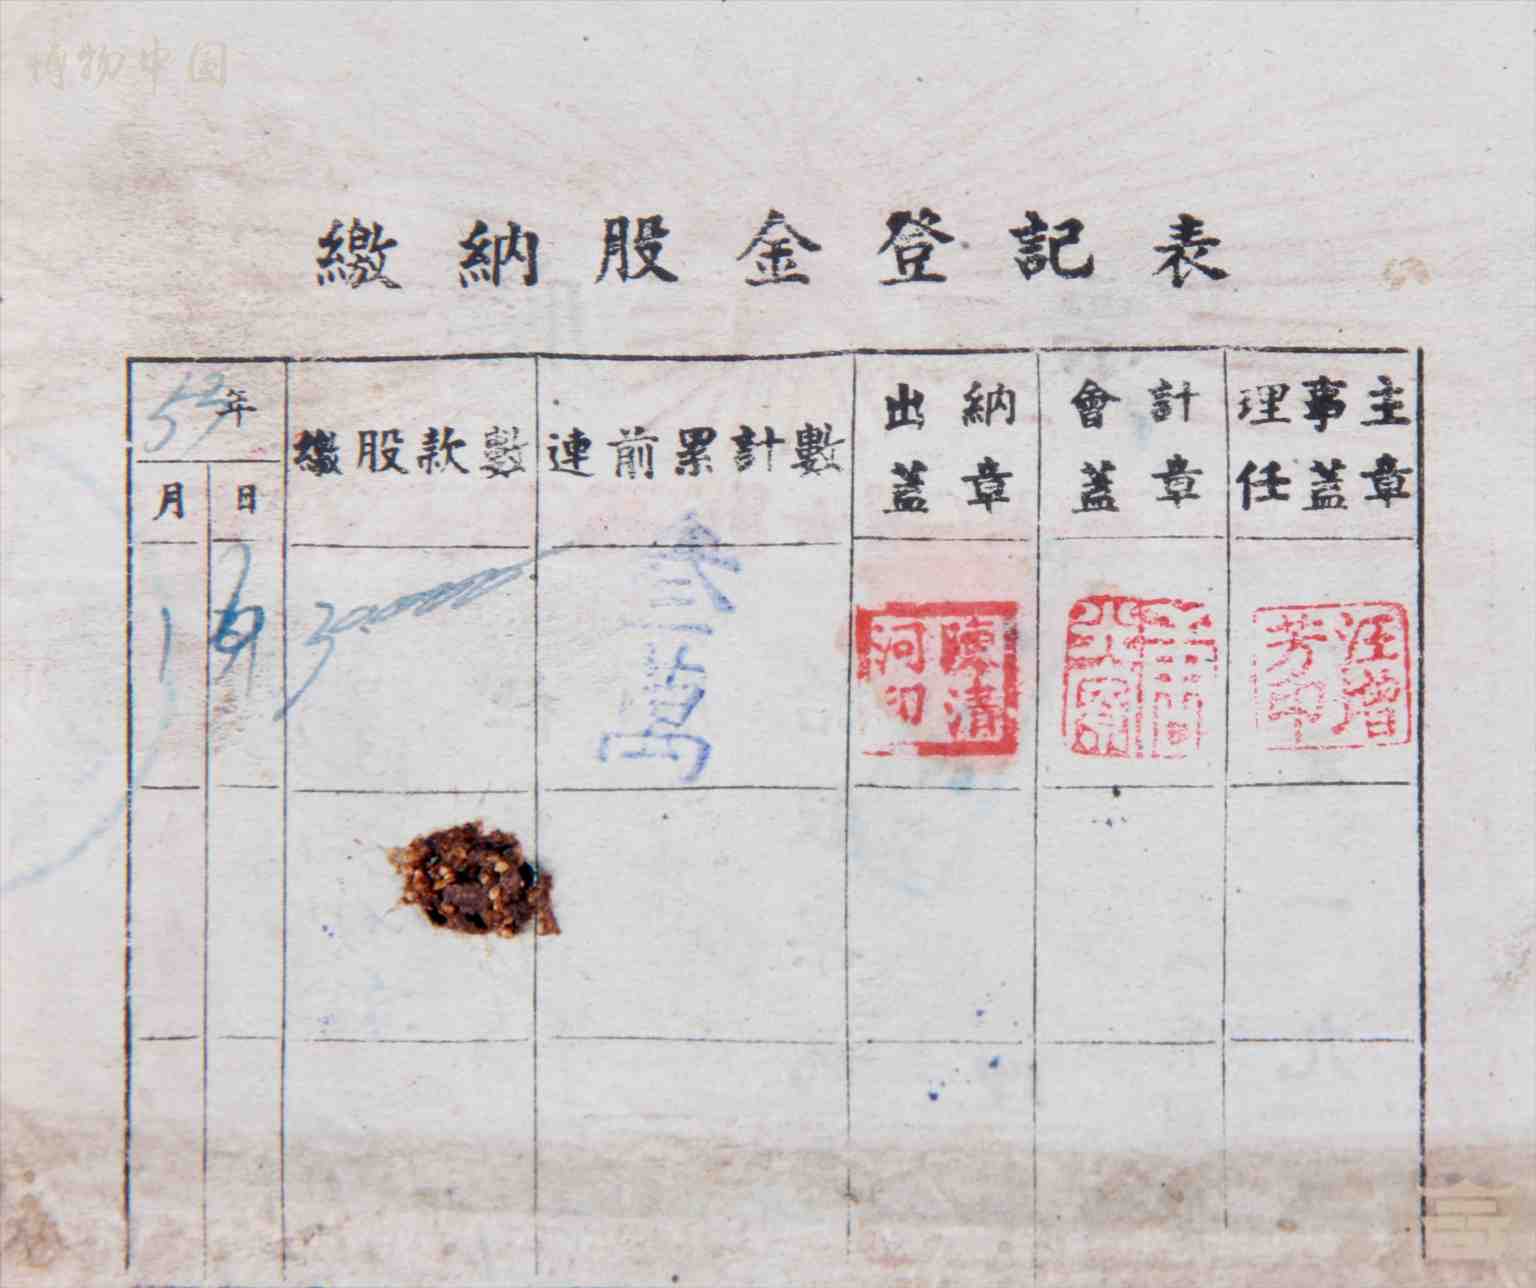 博物中国
繳納股金登記表
53年
月 日
繳股款數
連前累計數
出納
蓋章
會計
蓋章
理事主
任蓋章
1
30,000
叁萬
陳清河印
汪增芳印